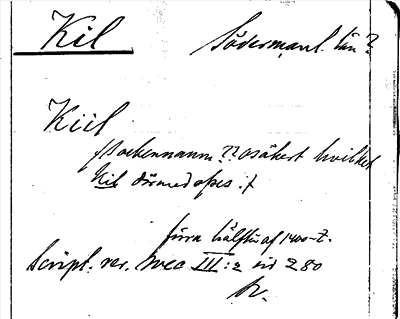 Kil Södermanl. län?
Kiil
(sockennamn ?? osäkert hvilket
Kil därmed afses.)
förra hälften af 1400-t.
Script. rer. svec III:2 sid 280